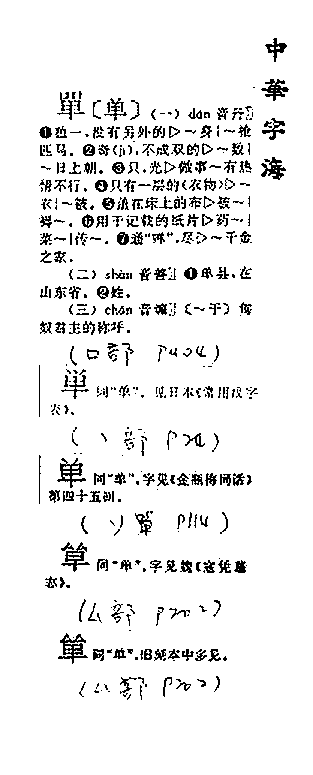 中華字海
單〔单〕(一) dān 音丹
❶独一,没有另外的▷~身|~枪
匹马。❷奇(jī),不成双的▷~数|
~日上朝。❸只,光▷做事~有热
情不行。❹只有一层的(衣物)▷~
衣|~被。❺铺在床上的布▷被~|
褥~。❻用于记载的纸片▷药~|
菜~|传~。❼通"殚",尽▷~千金
之家。
(二) shàn 音善 ❶单县,在
山东省。❷姓。
(三) chán 音馋 〔~于〕匈
奴君主的称呼。
(口部 P404)
単 同"单"。见日本《常用汉字
表》。
(丶部 P24)
同"单",字见《金瓶梅词话》
第四十五回。
同"单",字见魏《寇凭墓
志》。
(厶部 P202)
同"单",旧刻本中多见。
(厶部 P202)